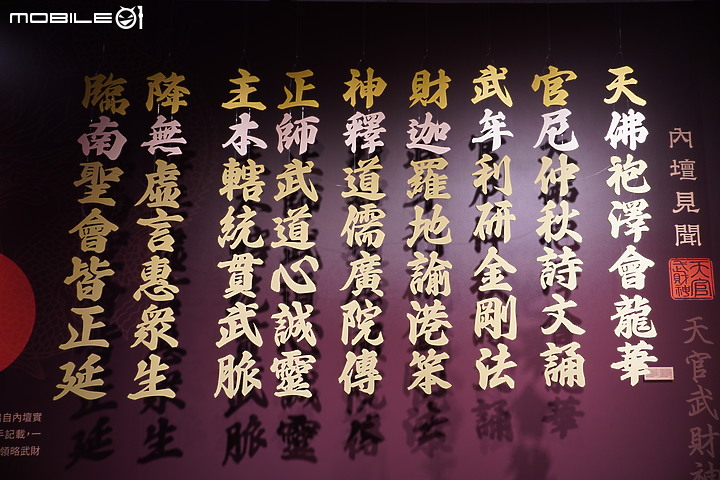 MOBILE01
內壇見聞
天官武財神
天官武財神
天佛袍澤會龍華
官尼仲秋詩文誦
武牟利研金剛法
財迦羅地諭港笨
神釋道儒廣院傳
正師武道心誠靈
主本轄統貫武脈
降無虛言惠眾生
臨南聖會皆正延
自內壇實
手記載，一
領略武財